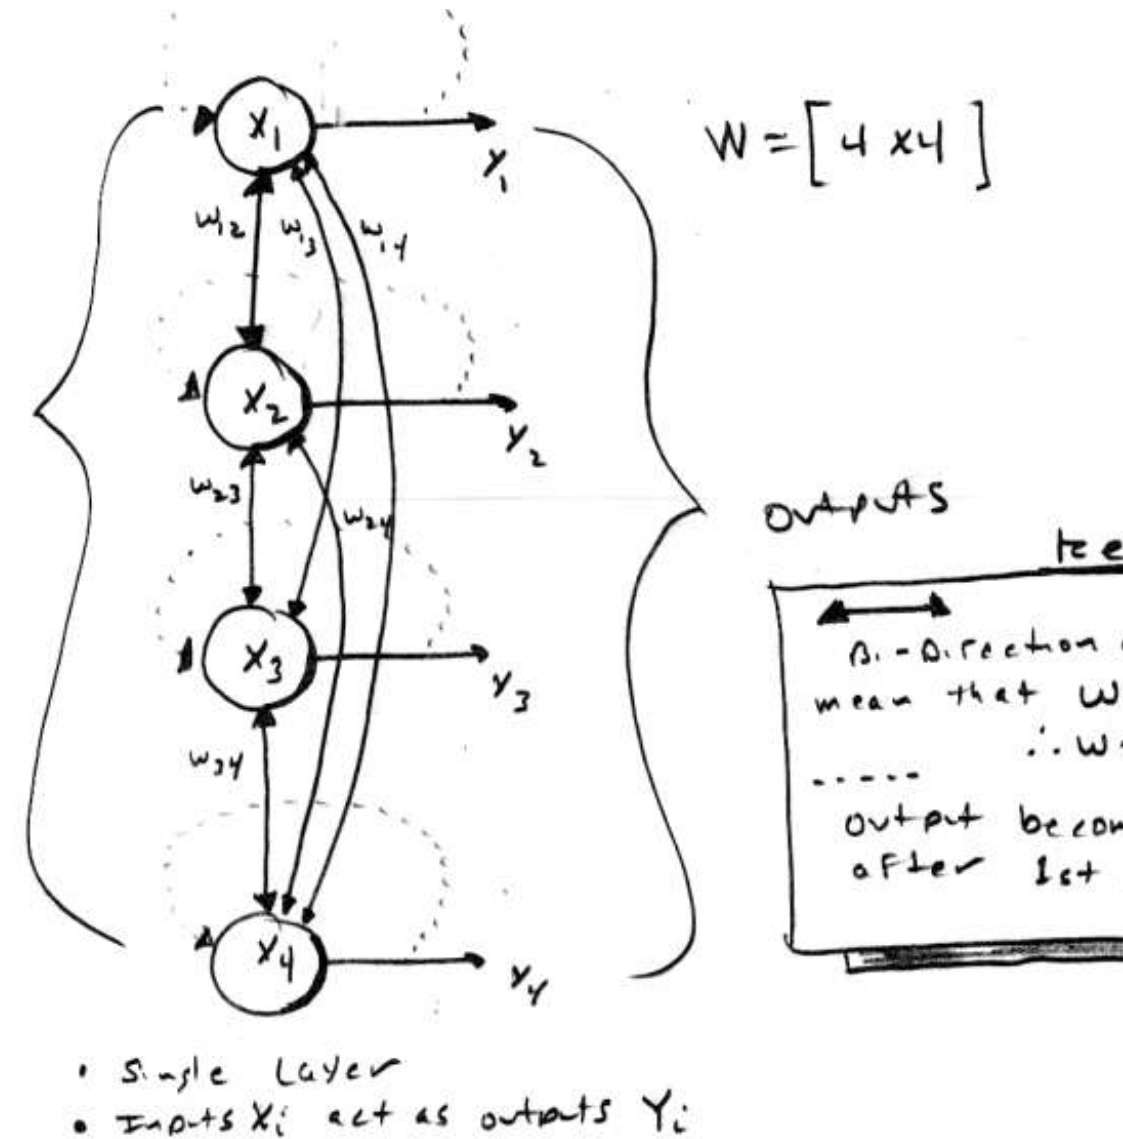 X1
Y1
W = [4 x 4]
W12
W13
W14
X2
Y2
W23
W24
outputs
Ke
X3
Y3
Bi-Direction
mean that W
∴ W
W34
-----
output becom
after 1st
X4
Y4
• Single Layer
• Inputs Xi act as outputs Yi